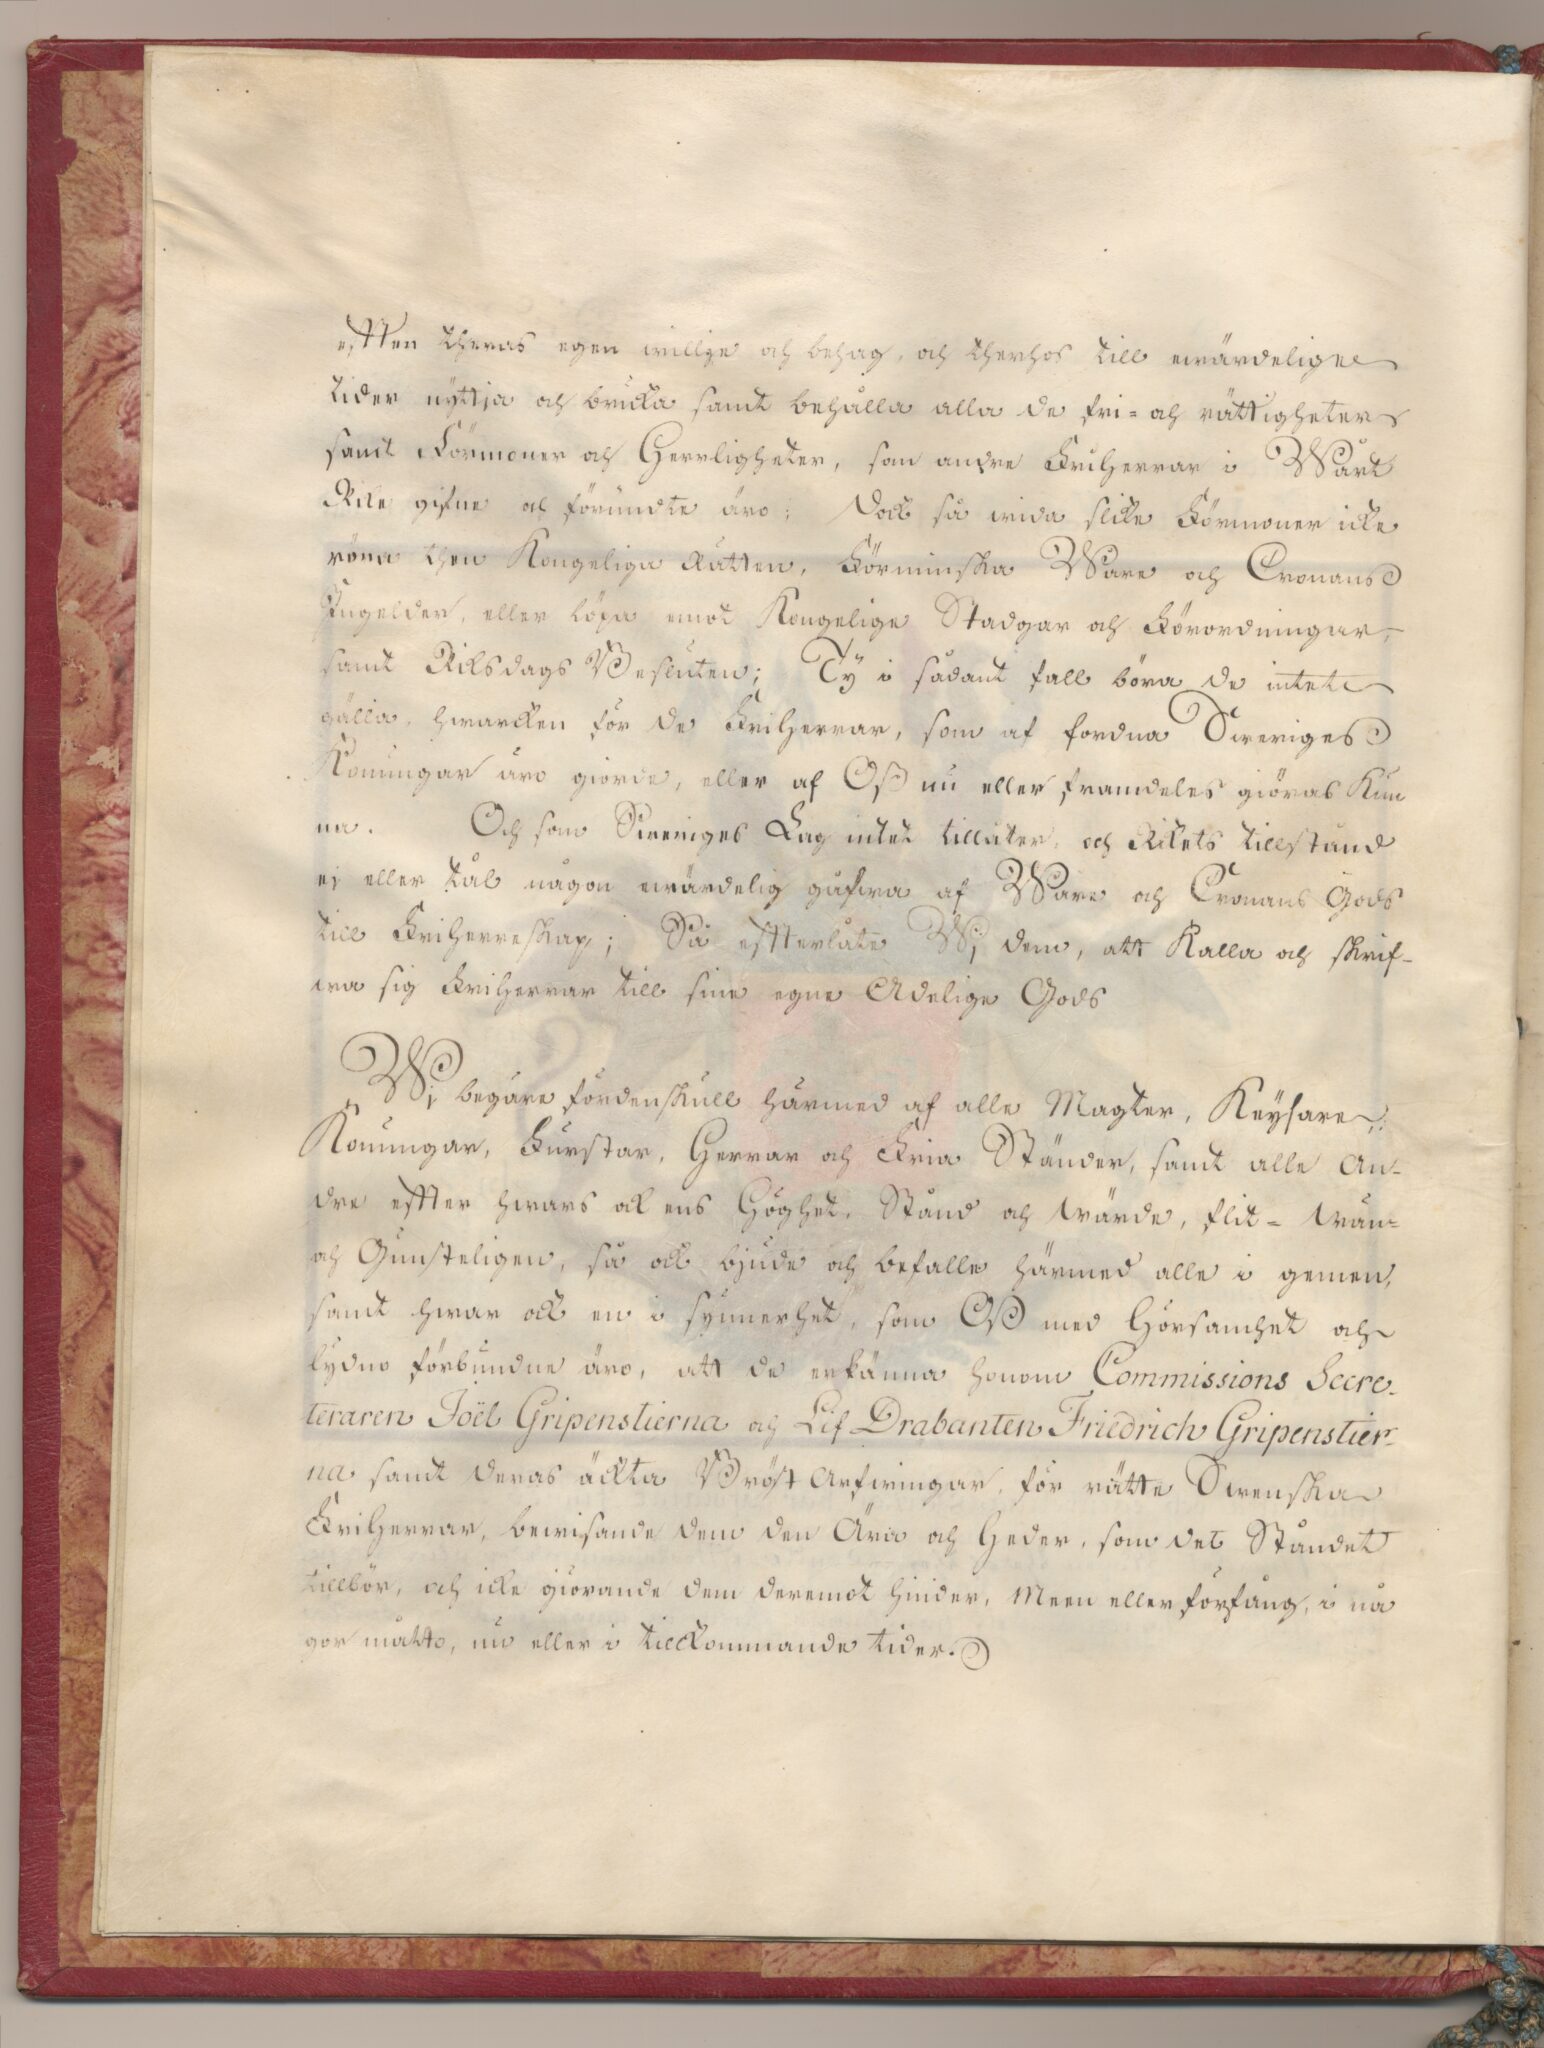 efften theras egen willie och behag, och therhos till ewärdelige
tider nyttja och bruka samt behålla alla de fri- och rättigheter
samt Förmoner och Herrligheter, som andre FriHerrar i Wårt
Rike gifne och förundte äro; Dock så wida slike Förmoner icke
röra then Kongeliga Rätten, Förminska Wåre och Cronans
Ingelder, eller löpa emot Kongelige Stadgar och Förordningar,
samt Riksdags Besluten; Ty i sådant fall böra de intet
gälla, hwarcken för de FriHerrar, som af fordna Sweriges
Konungar äro giorde, eller af Oß nu eller framdeles giöras kun
na. Och som Sweriges Lag intet tillåter, och Rikets tillstånd
ej eller tål någon ewärdelig gåfwa af Wåre och Cronans Gods
till FriHerreskap; Så effterlåte Wj dem, att kalla och skrif-
wa sig FriHerrar till sine egne Adelige Gods
Wj begäre fördenskull härmed af alle Magter, Keysare,
Konungar, Furstar, Herrar och Fria Ständer, samt alle An-
dre effter hwars ock ens Höghet, Stånd och wärde, flit- wän-
och Gunsteligen, så ock bjude och befalle härmed alle i gemen,
samt hwar ock en i synnerhet, som Oß med Hörsamhet och
lydno förbundne äro, att de erkänna honom Commissions Secre-
teraren Joël Gripenstierna och Lif Drabanten Friedrich Gripenstier-
na samt deras äckta Bröst Arfwingar, för rätte Swenska
FriHerrar, bewisande dem den Äro och Heder, som det Ståndet
tillbör, och icke giorande dem deremot hinder, Meen eller förfång, i nå
gor måtto, nu eller i tillkommande tider.